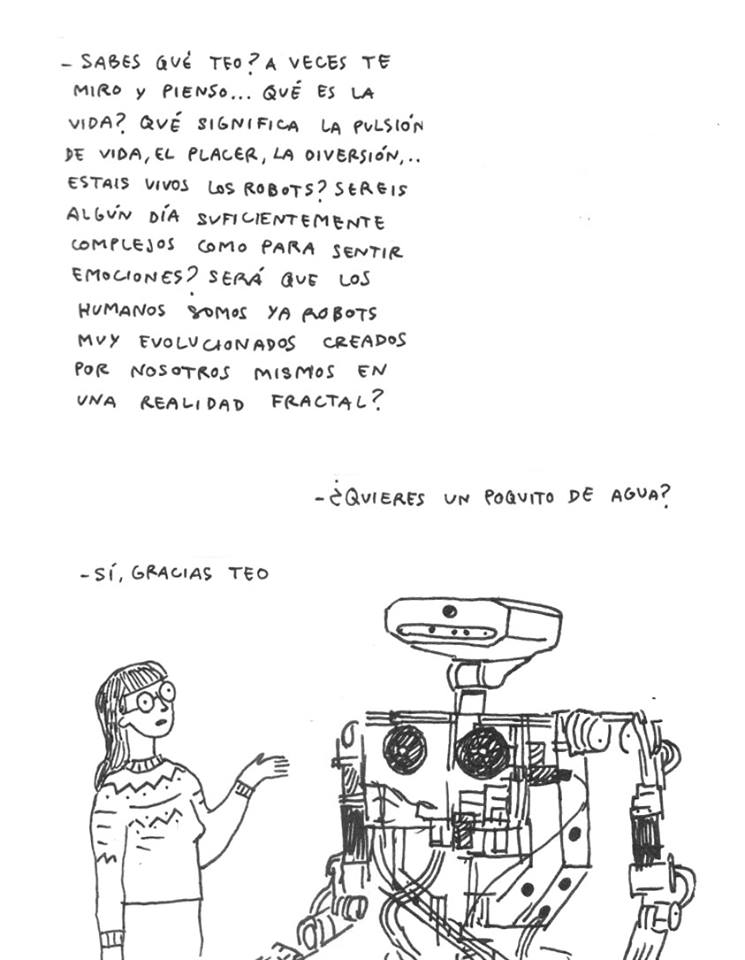 - SABES QUÉ TEO? A VECES TE
MIRO Y PIENSO... QUÉ ES LA
VIDA? QUÉ SIGNIFICA LA PULSIÓN
DE VIDA, EL PLACER, LA DIVERSIÓN,..
ESTAIS VIVOS LOS ROBOTS? SEREIS
ALGÚN DÍA SUFICIENTEMENTE
COMPLEJOS COMO PARA SENTIR
EMOCIONES? SERÁ QUE LOS
HUMANOS SOMOS YA ROBOTS
MUY EVOLUCIONADOS CREADOS
POR NOSOTROS MISMOS EN
UNA REALIDAD FRACTAL?
- ¿QUIERES UN POQUITO DE AGUA?
- SÍ, GRACIAS TEO